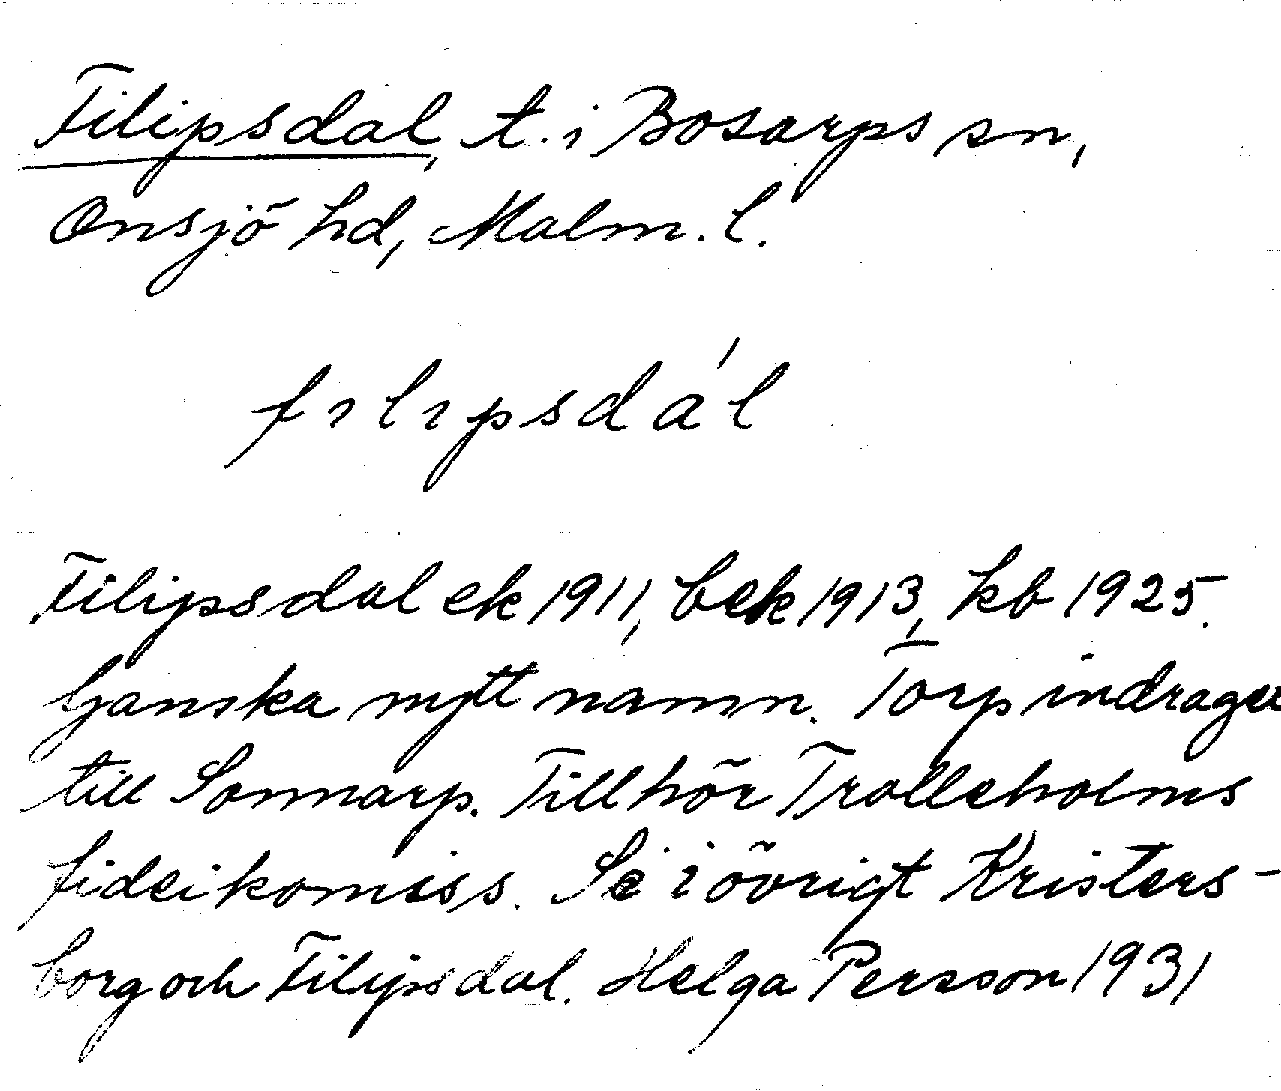 Filipsdal, t. i Bosarps sn,
Onsjö hd, Malm. l.
fılıpsdál
Filipsdal ek 1911, bek 1913, kb 1925.
Ganska nytt namn. Torp indraget
till Sonnarp. Tillhör Trolleholms
fideikomiss. Se i övrigt Kristers-
borg och Filipsdal. Helga Persson 1931